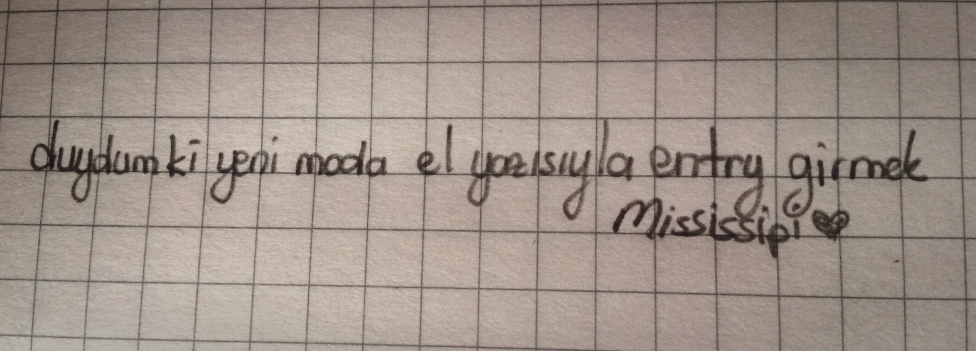 duydumki yeni moda el yazısıyla entry girmek
Mississipi